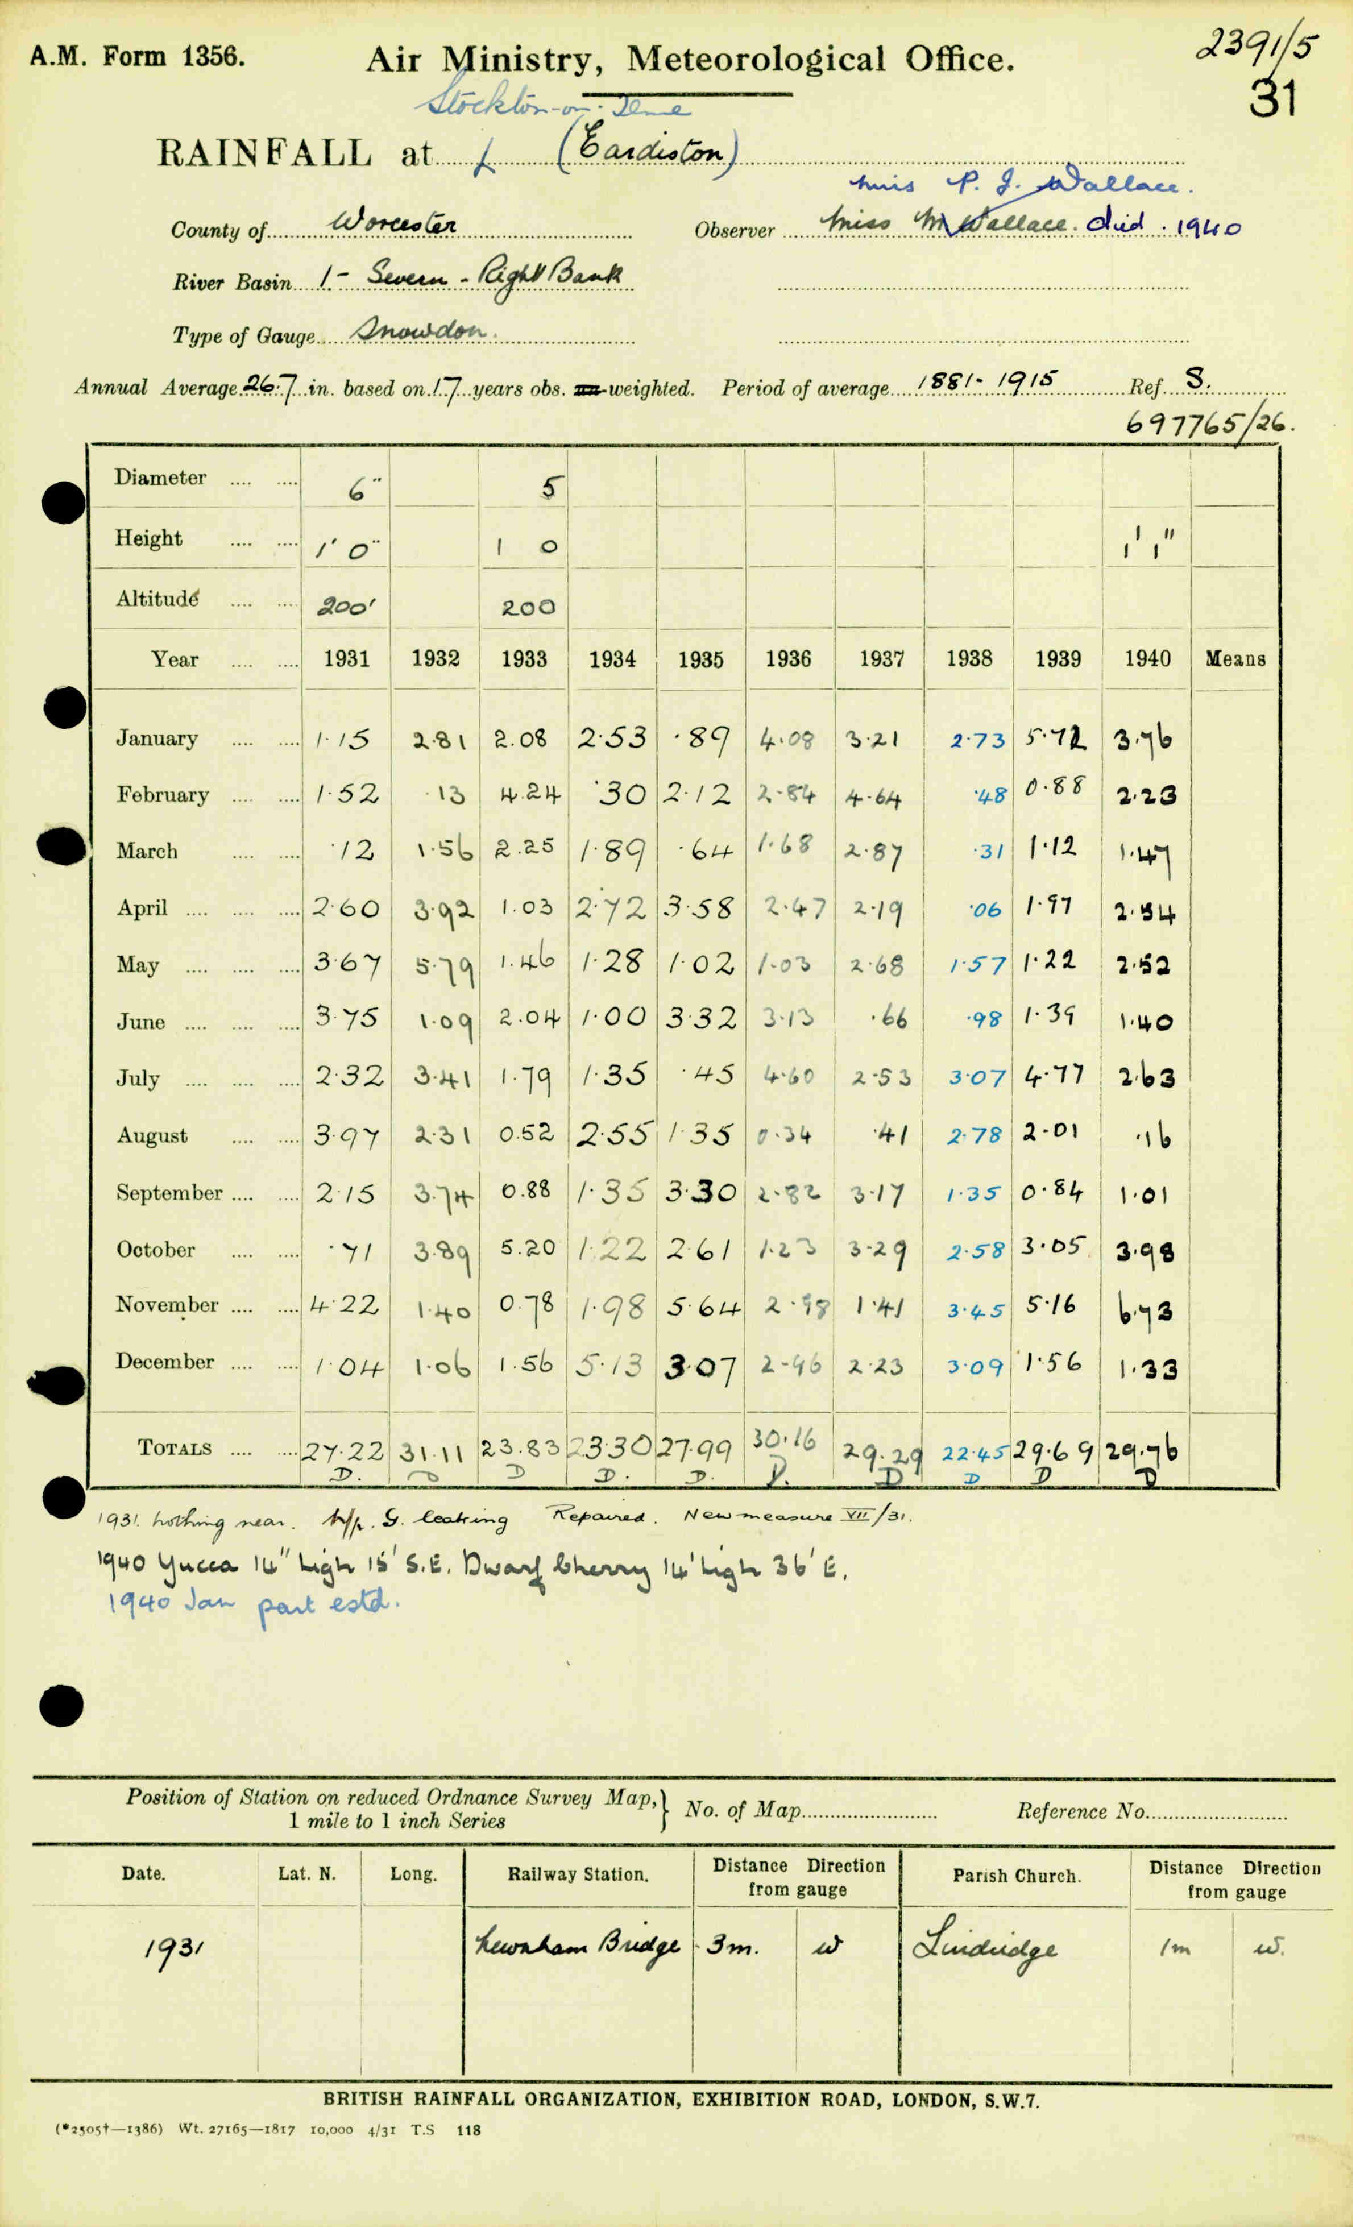 2391/5
A.M. Form 1356. Air Ministry, Meteorological Office. 31
Stockton-on-Teme
RAINFALL at (Eardiston)
Miss P. J. Wallace.
County of Worcester Observer Miss M Wallace. died . 1940
River Basin 1 - Severn - Right Bank
Type of Gauge Snowdon.
Annual Average 26.7 in. based on 17 years obs. un-weighted. Period of average 1881-1915 Ref. S.
697765/26.
Diameter 6" 5
Height 1' 0" 1 0 1' 1"
Altitude 200' 200
Year 1931 1932 1933 1934 1935 1936 1937 1938 1939 1940 Means
January 1.15 2.81 2.08 2.53 .89 4.08 3.21 2.73 5.72 3.76
February 1.52 .13 4.24 .30 2.12 2.84 4.64 .48 0.88 2.23
March .12 1.56 2.25 1.89 .64 1.68 2.87 .31 1.12 1.47
April 2.60 3.92 1.03 2.72 3.58 2.47 2.19 .06 1.97 2.54
May 3.67 5.79 1.46 1.28 1.02 1.03 2.68 1.57 1.22 2.52
June 3.75 1.09 2.04 1.00 3.32 3.13 .66 .98 1.39 1.40
July 2.32 3.41 1.79 1.35 .45 4.60 2.53 3.07 4.77 2.63
August 3.97 2.31 0.52 2.55 1.35 0.34 .41 2.78 2.01 .16
September 2.15 3.74 0.88 1.35 3.30 2.82 3.17 1.35 0.84 1.01
October .71 3.89 5.20 1.22 2.61 1.23 3.29 2.58 3.05 3.98
November 4.22 1.40 0.78 1.98 5.64 2.98 1.41 3.45 5.16 6.73
December 1.04 1.06 1.56 5.13 3.07 2.96 2.23 3.09 1.56 1.33
TOTALS 27.22 31.11 23.83 23.30 27.99 30.16 29.29 22.45 29.69 29.76
D. D D D. D. D. D D D D
1931. Nothing near. G. leaking Repaired. New measure VII/31.
1940 Yucca 14" high 15' S.E. Dwarf Cherry 14' high 36' E.
1940 Jan part estd.
Position of Station on reduced Ordnance Survey Map, } No. of Map Reference No.
1 mile to 1 inch Series
Date. Lat. N. Long. Railway Station. Distance Direction from gauge Parish Church. Distance Direction from gauge
1931 Newnham Bridge 3m. W Lindridge 1m W.
BRITISH RAINFALL ORGANIZATION, EXHIBITION ROAD, LONDON, S.W.7.
(*2505†—1386) Wt. 27165—1817 10,000 4/31 T.S 118